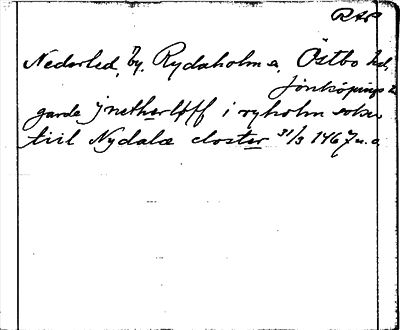 RAP
Nederled, by, Rydaholm s, Östbo hd,
Jönköpings l
garde j netherløff i ryholm sokn
tiil Nydalæ closter 31/3 1467 u. o